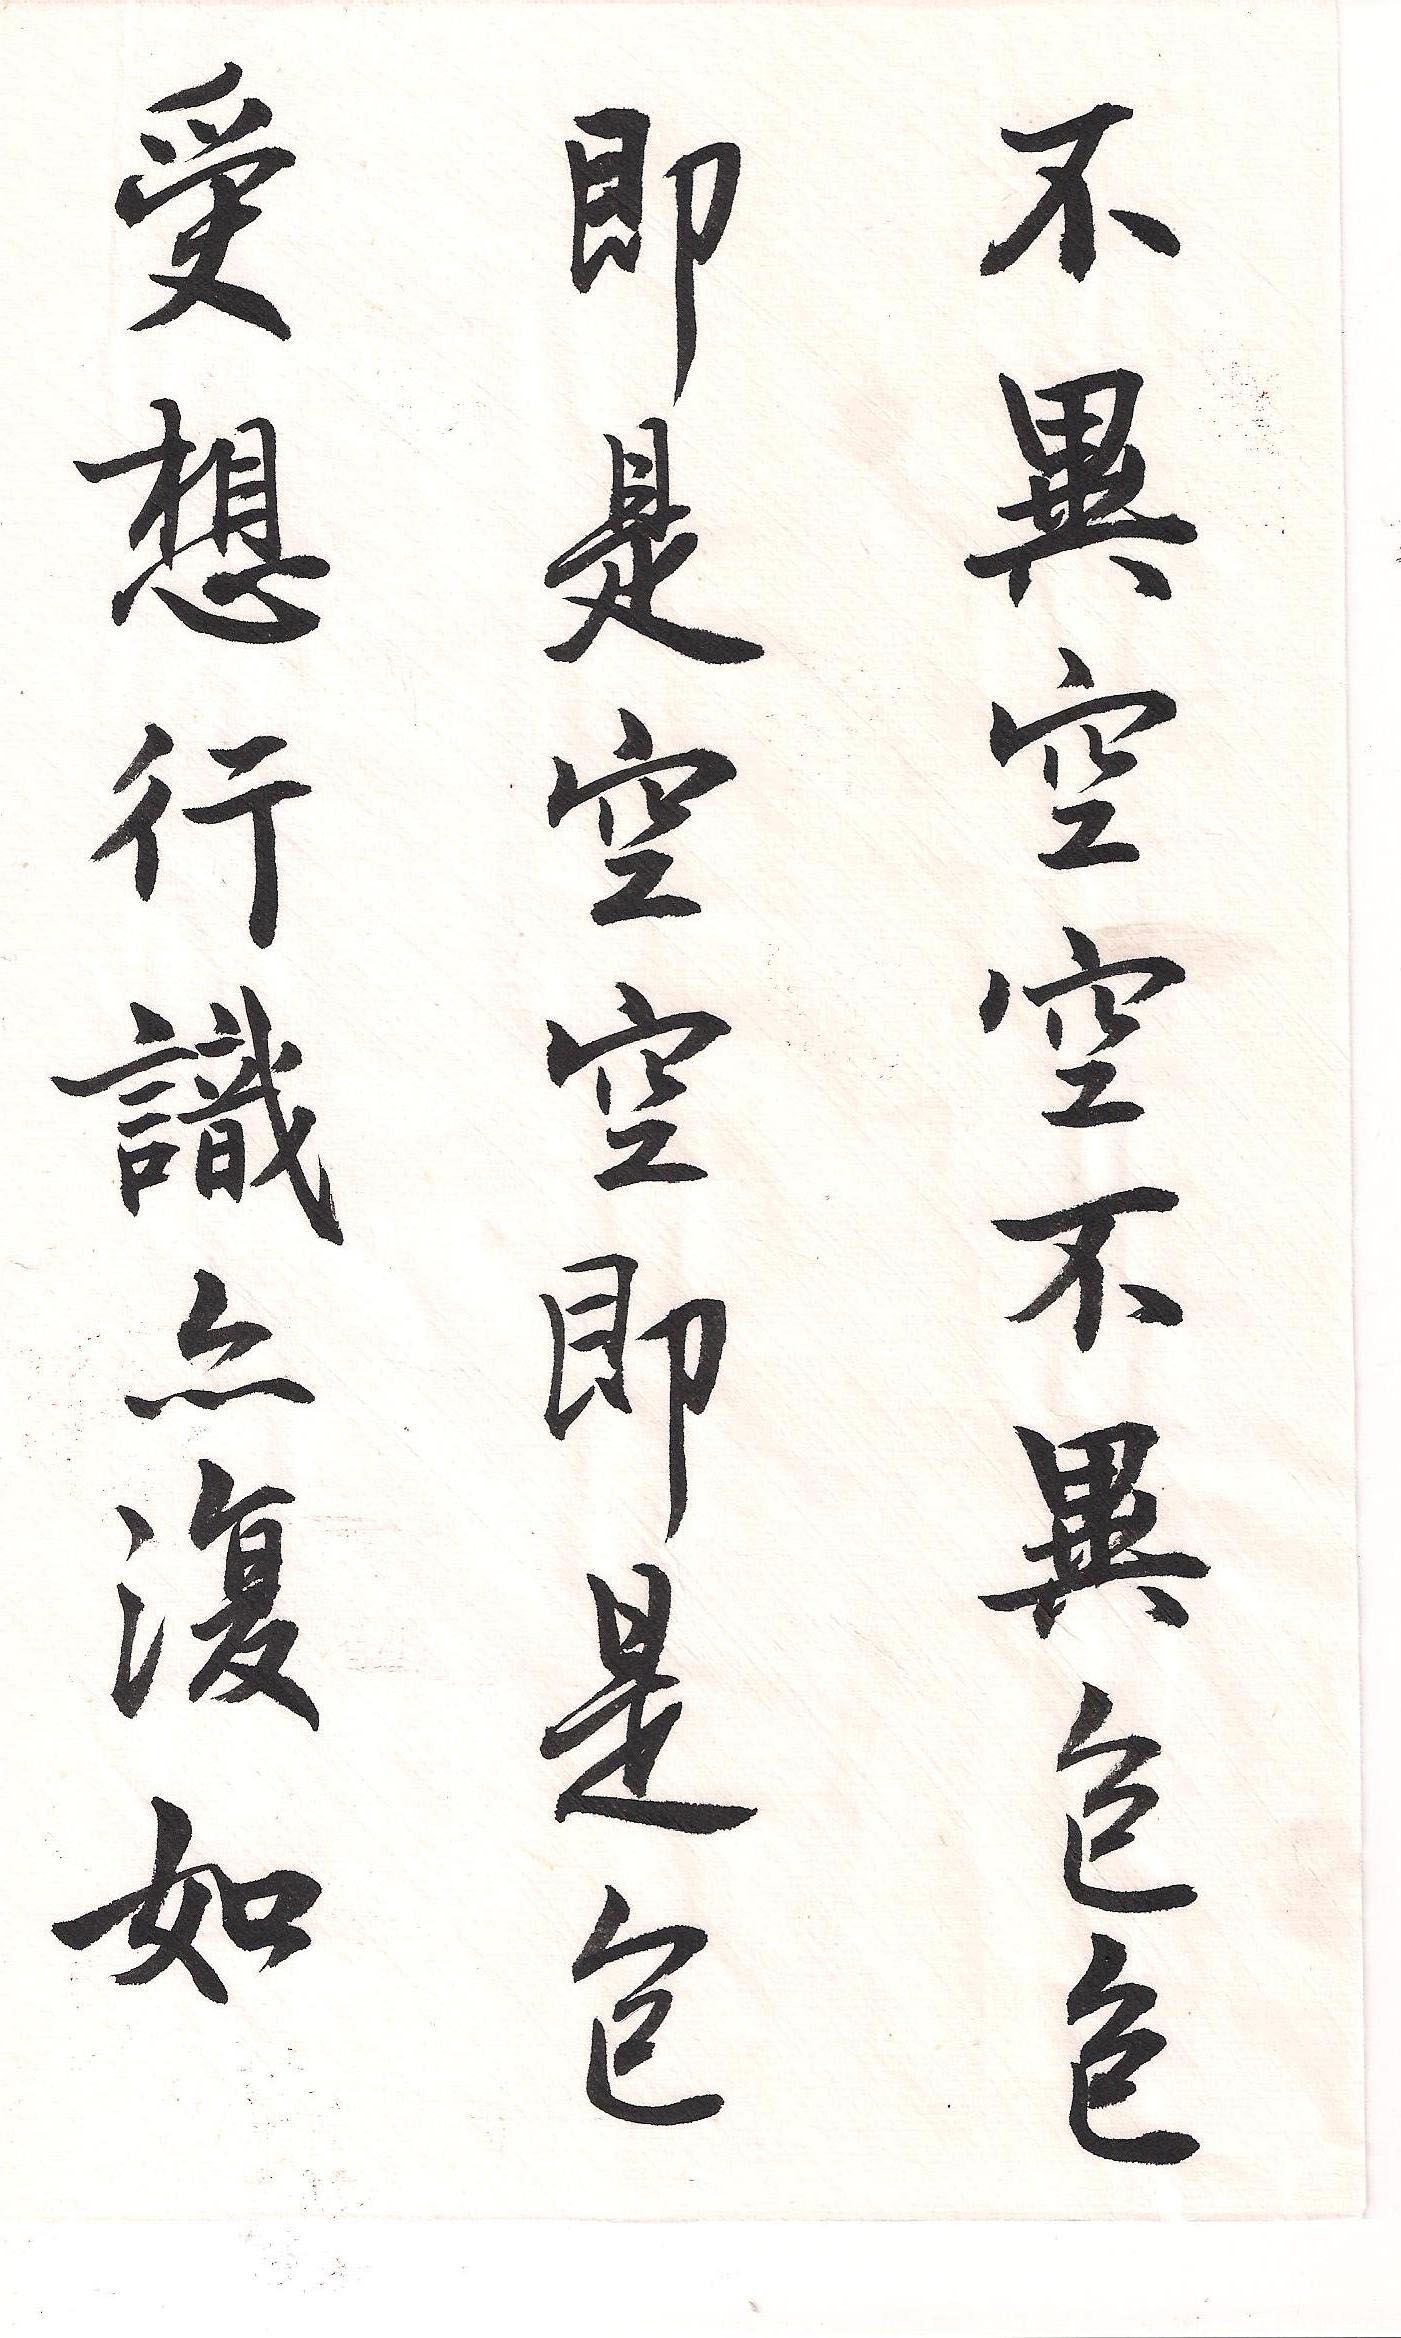 不異空空不異色色
即是空空即是色
受想行識亦復如